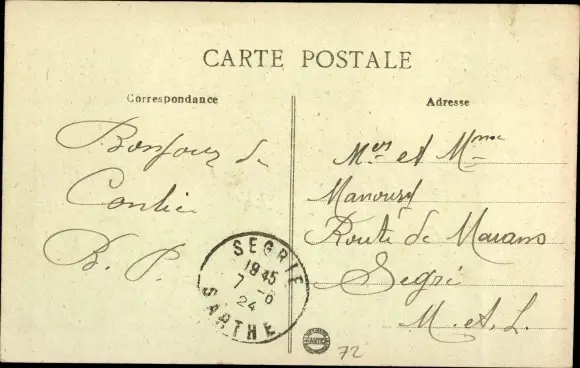 CARTE POSTALE
Correspondance
Bonjour de
Conlie
B. P.
SEGRIE
1945
7 -6
24
SARTHE
Adresse
Mers et Mme
Manoury
Route de Marans
Segré
M. et L.
72